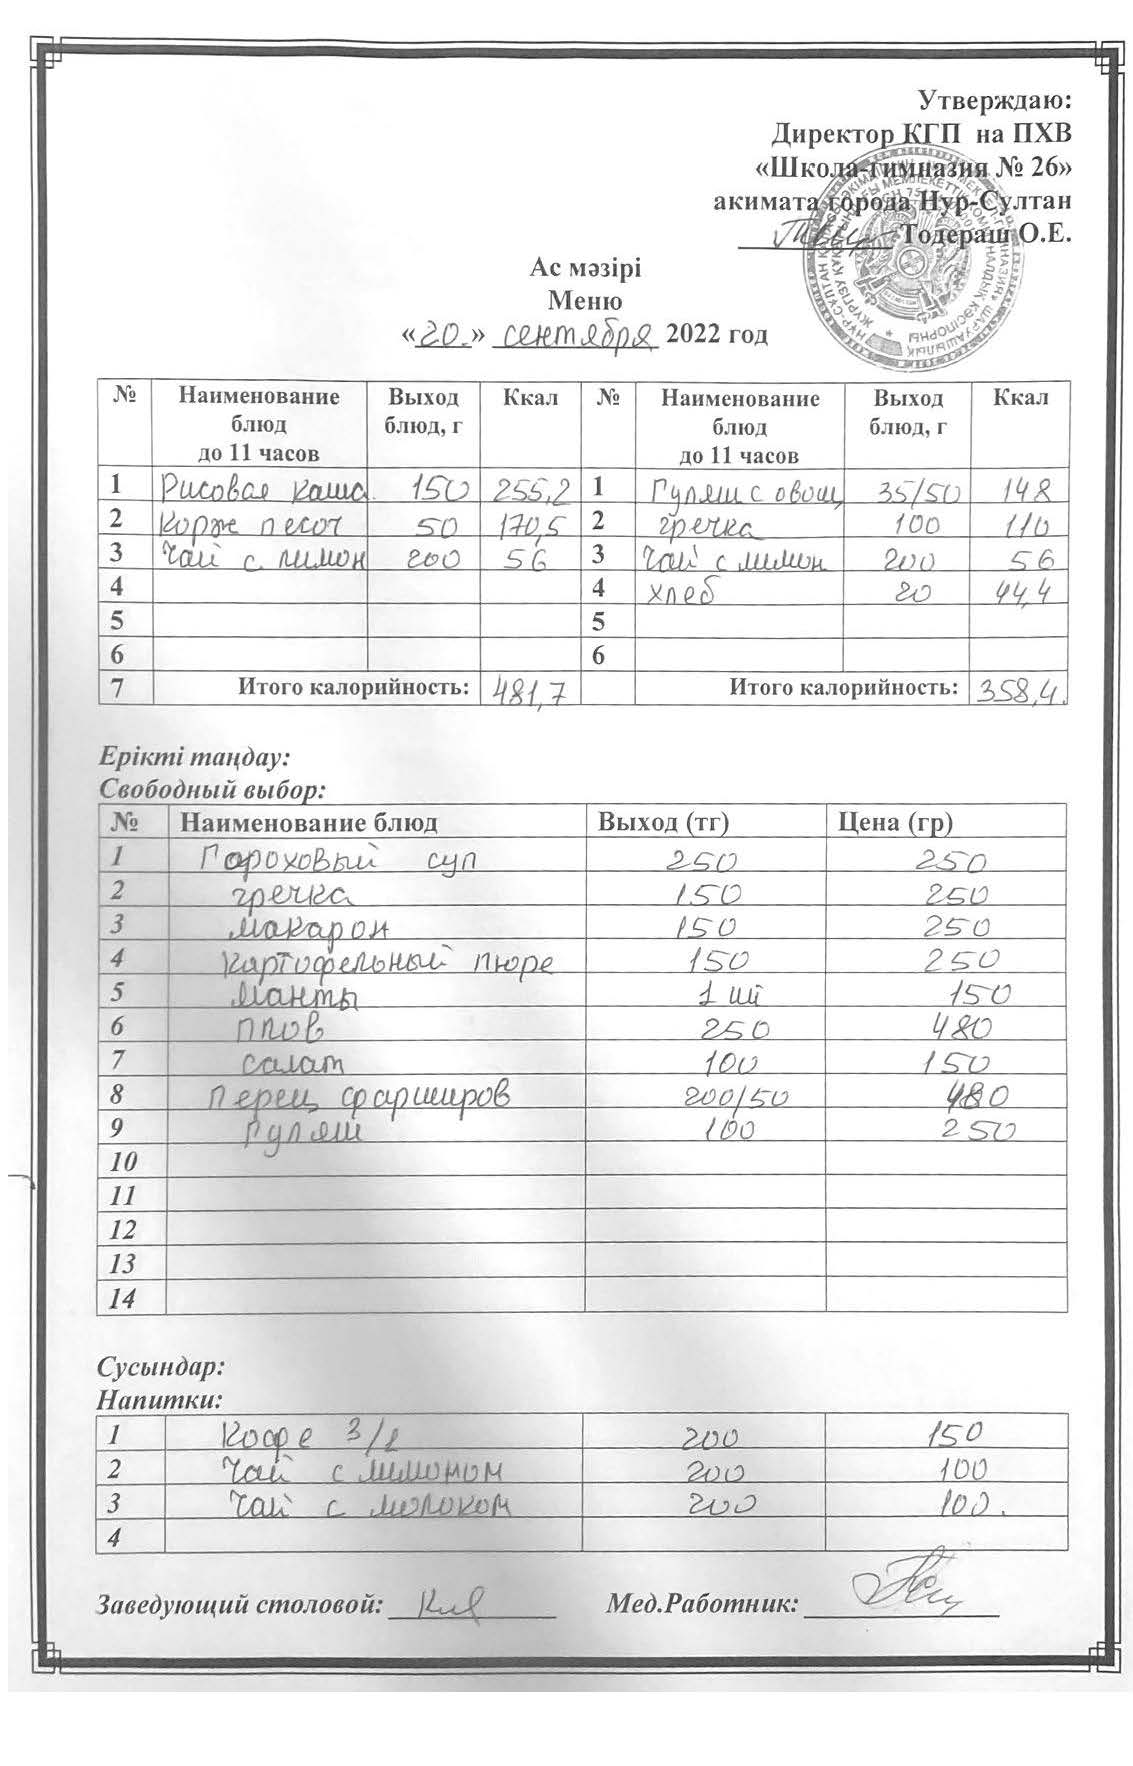 Утверждаю:
Директор КГП на ПХВ
«Школа-гимназия № 26»
акимата города Нур-Султан
Тодераш О.Е.
Ас мәзірі
Меню
«20» сентября 2022 год
№ Наименование блюд до 11 часов Выход блюд, г Ккал № Наименование блюд до 11 часов Выход блюд, г Ккал
1 Рисовая каша 150 255,2 1 Гуляш с овощ 35/50 148
2 Корж песоч 50 170,5 2 гречка 100 110
3 Чай с лимон 200 56 3 Чай с лимон 200 56
4 4 хлеб 20 44,4
5 5
6 6
7 Итого калорийность: 481,7 Итого калорийность: 358,4.
Ерікті таңдау:
Свободный выбор:
№ Наименование блюд Выход (тг) Цена (гр)
1 Гороховый суп 250 250
2 гречка 150 250
3 макарон 150 250
4 Картофельный пюре 150 250
5 Манты 1 шт 150
6 плов 250 480
7 салат 100 150
8 Перец фарширов 200/50 480
9 Гуляш 100 250
10
11
12
13
14
Сусындар:
Напитки:
1 Кофе 3/1 200 150
2 Чай с лимоном 200 100
3 Чай с молоком 200 100.
4
Заведующий столовой: Мед.Работник: